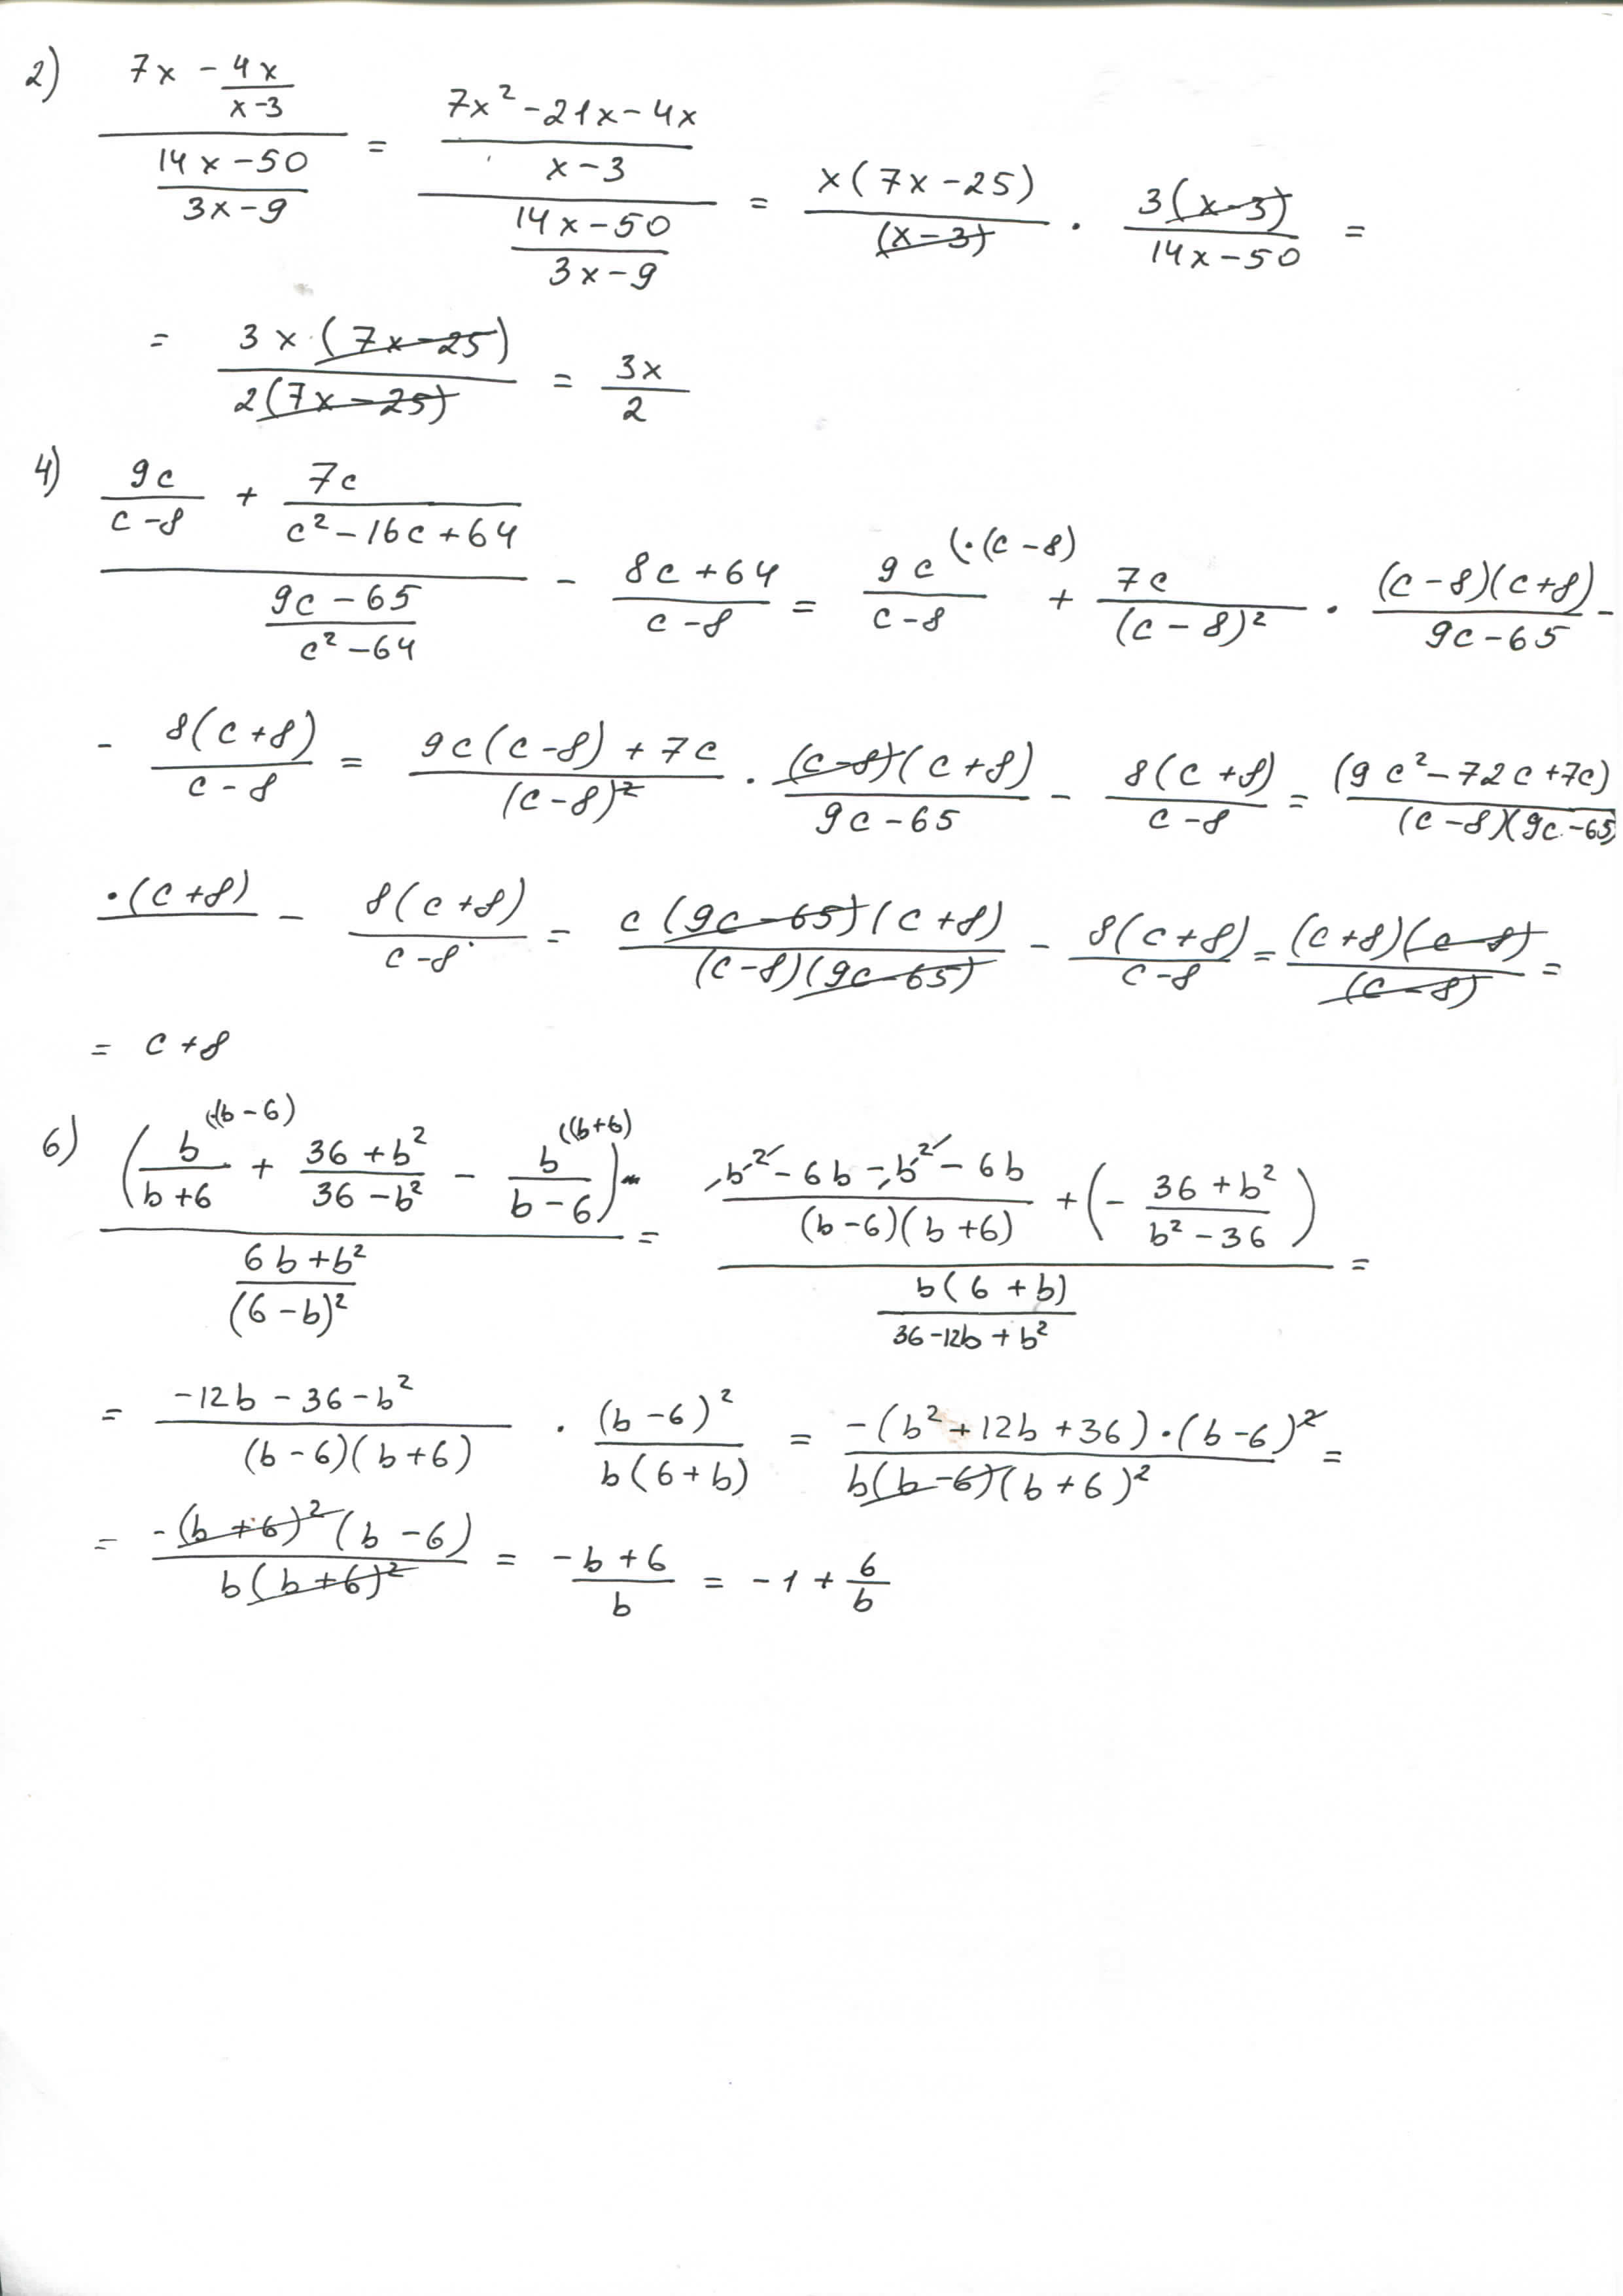 2) (7x - 4x/(x-3)) / ((14x-50)/(3x-9)) = ((7x²-21x-4x)/(x-3)) / ((14x-50)/(3x-9)) = x(7x-25)/(x-3) · 3(x-3)/(14x-50) =
= 3x·(7x-25)/2(7x-25) = 3x/2
4) (9c/(c-8) + 7c/(c²-16c+64)) / ((9c-65)/(c²-64)) - (8c+64)/(c-8) = 9c/(c-8) (·(c-8) + 7c/(c-8)² · (c-8)(c+8)/(9c-65) -
- 8(c+8)/(c-8) = (9c(c-8)+7c)/(c-8)² · (c-8)(c+8)/(9c-65) - 8(c+8)/(c-8) = (9c²-72c+7c)/(c-8)(9c-65)
·(c+8) - 8(c+8)/(c-8) = c(9c-65)(c+8)/(c-8)(9c-65) - 8(c+8)/(c-8) = (c+8)(c-8)/(c-8) =
= c+8
6) (b/(b+6) (·(b-6) + (36+b²)/(36-b²) - b/(b-6) ((b+6)) / ((6b+b²)/(6-b)²) = ((b²-6b-b²-6b)/(b-6)(b+6) + (-(36+b²)/(b²-36))) / (b(6+b)/(36-12b+b²)) =
= (-12b-36-b²)/(b-6)(b+6) · (b-6)²/b(6+b) = -(b²+12b+36)·(b-6)²/b(b-6)(b+6)² =
= -(b+6)²(b-6)/b(b+6)² = (-b+6)/b = -1+6/b